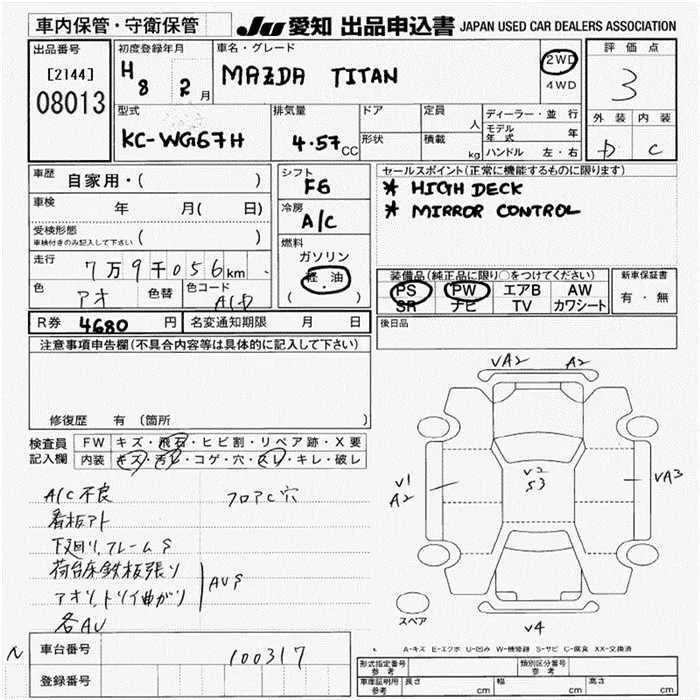 車内保管・守衛保管
JU 愛知 出品申込書 JAPAN USED CAR DEALERS ASSOCIATION
出品番号
[2144]
08013
初度登録年月
H 8 2 月
車名・グレード
MAZDA TITAN
2WD
4WD
評価点
3
外装 内装
D C
型式
KC-WG67H
排気量
4.57 CC
ドア
形状
定員 人
積載 kg
ディーラー・並行
モデル年式 年
ハンドル 左・右
車歴 自家用・( )
車検 年 月( 日)
受検形態
車検付きのみ記入して下さい ( )
走行 7万9千056km
色 アオ 色替 色コード
シフト
F6
冷房
A/C
燃料
ガソリン
軽・油
( )
セールスポイント(正常に機能するものに限ります)
* HIGH DECK
* MIRROR CONTROL
装備品(純正品に限り○をつけてください)
PS PW エアB AW
SR ナビ TV カワシート
新車保証書
有・無
R券 4680 円 名変通知期限 月 日
後日品
注意事項申告欄(不具合内容等は具体的に記入して下さい)
修復歴 有 (箇所 )
検査員 FW キズ・飛石・ヒビ割・リペア跡・X要
記入欄 内装 キズ・汚レ・コゲ・穴・スレ・キレ・破レ
A/C不良 フロアC穴
看板アト
下廻り、フレームS
荷台床鉄板張り
アオリ、トリイ曲がり AUS
各AU
VA2 A2
V1
A2
V2
S3
VA3
V4
スペア
A-キズ E-エクボ U-凹み W-補修跡 S-サビ C-腐食 XX-交換済
車台番号 100317
登録番号
形式指定番号 参考
類別区分番号 参考
車庫証明用 参考 長さ cm 幅 cm 高さ cm